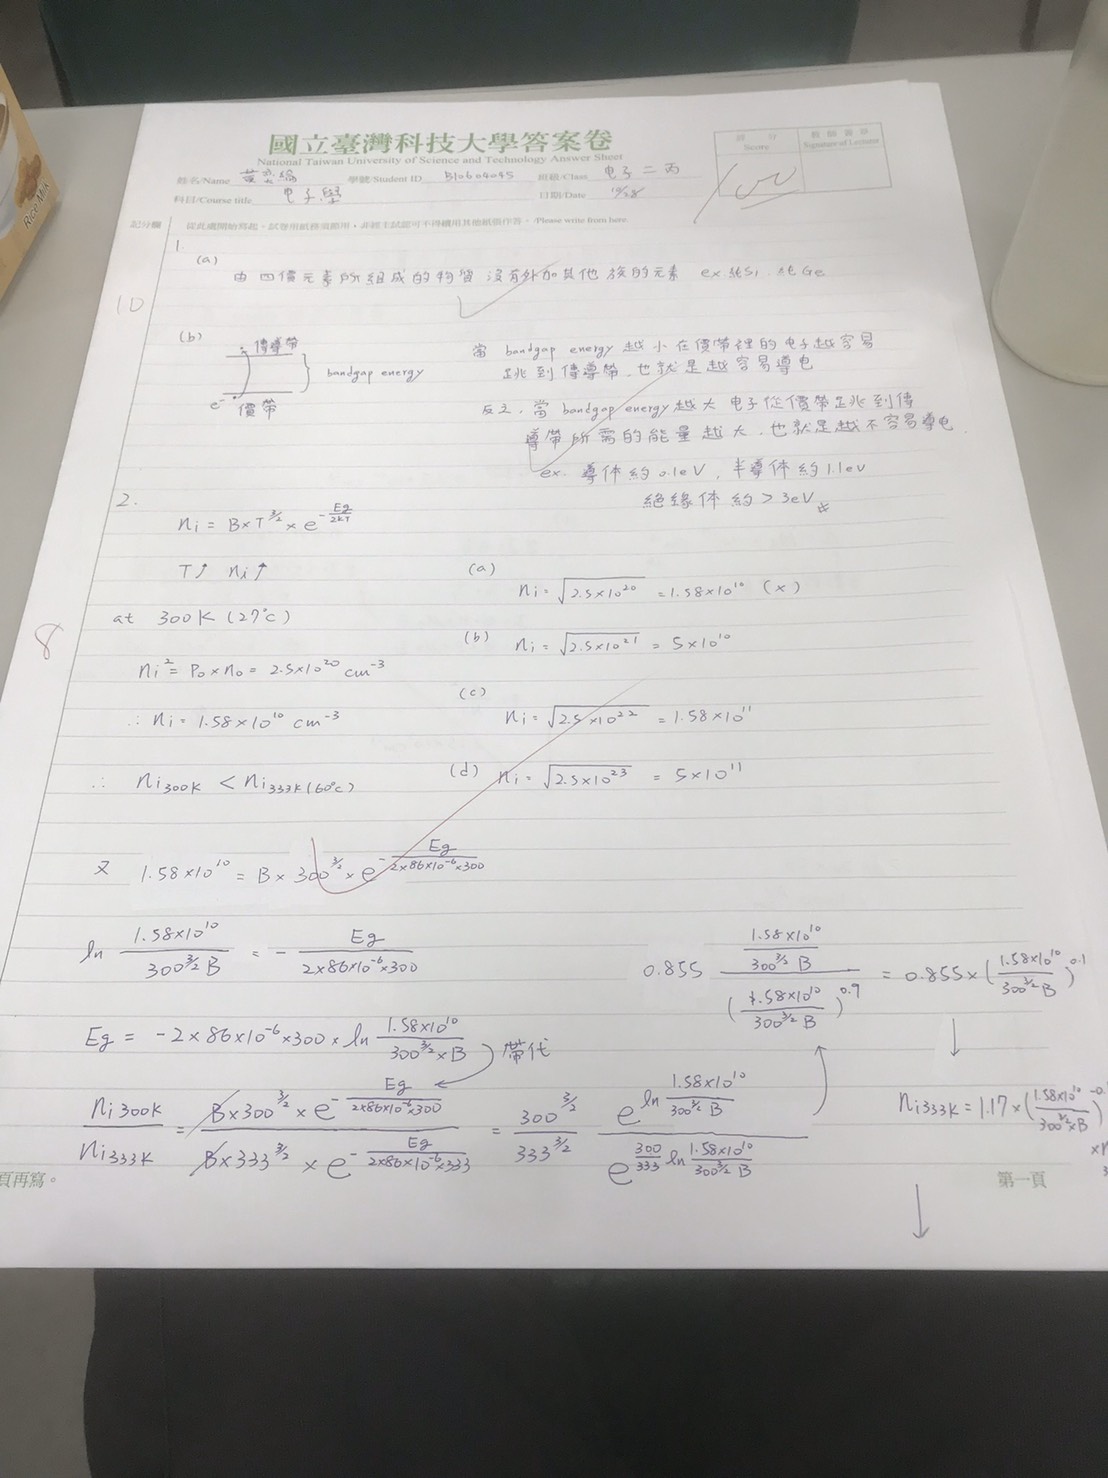 國立臺灣科技大學答案卷
National Taiwan University of Science and Technology Answer Sheet
評 分 Score
教師簽章 Signature of Lecturer
100
姓名/Name 學號/Student ID B10604045 班級/Class 电子二丙
科目/Course title 电子學 日期/Date
記分欄 /Please write from here.
1.
(a)
由四價元素所組成的物質沒有外加其他族的元素 ex.純Si、純Ge
10
(b)
傳導帶
bandgap energy
e⁻ 價帶
當 bandgap energy 越小在價帶裡的电子越容易
跳到傳導帶,也就是越容易導电
反之,當 bandgap energy 越大 电子從價帶跳到傳
導帶所需的能量越大,也就是越不容易導电.
ex. 導体約0.1eV, 半導体約1.1eV
絕緣体約>3eV
2.
ni = B×T^3/2 × e^-Eg/2kT
T↑ ni↑
at 300K (27°c)
8
ni² = Po×no = 2.5×10²⁰ cm⁻³
∴ ni = 1.58×10¹⁰ cm⁻³
∴ ni300K < ni333K(60°c)
(a)
ni = √2.5×10²⁰ = 1.58×10¹⁰ (x)
(b)
ni = √2.5×10²¹ = 5×10¹⁰
(c)
ni = √2.5×10²² = 1.58×10¹¹
(d) ni = √2.5×10²³ = 5×10¹¹
又 1.58×10¹⁰ = B×300^3/2 × e^-Eg/2×86×10⁻⁶×300
ln 1.58×10¹⁰/300^3/2 B = - Eg/2×86×10⁻⁶×300
Eg = -2×86×10⁻⁶×300×ln 1.58×10¹⁰/300^3/2×B
帶代
ni300K/ni333K = B×300^3/2 × e^-Eg/2×86×10⁻⁶×300 / B×333^3/2 × e^-Eg/2×86×10⁻⁶×333 = 300^3/2/333^3/2 e^ln 1.58×10¹⁰/300^3/2 B / e^300/333 ln 1.58×10¹⁰/300^3/2 B
0.855 1.58×10¹⁰/300^3/2 B / (1.58×10¹⁰/300^3/2 B)^0.9 = 0.855×(1.58×10¹⁰/300^3/2 B)^0.1
↓
ni333K = 1.17×(1.58×10¹⁰/300^3/2×B)
↓
頁再寫。
第一頁
Rice Milk